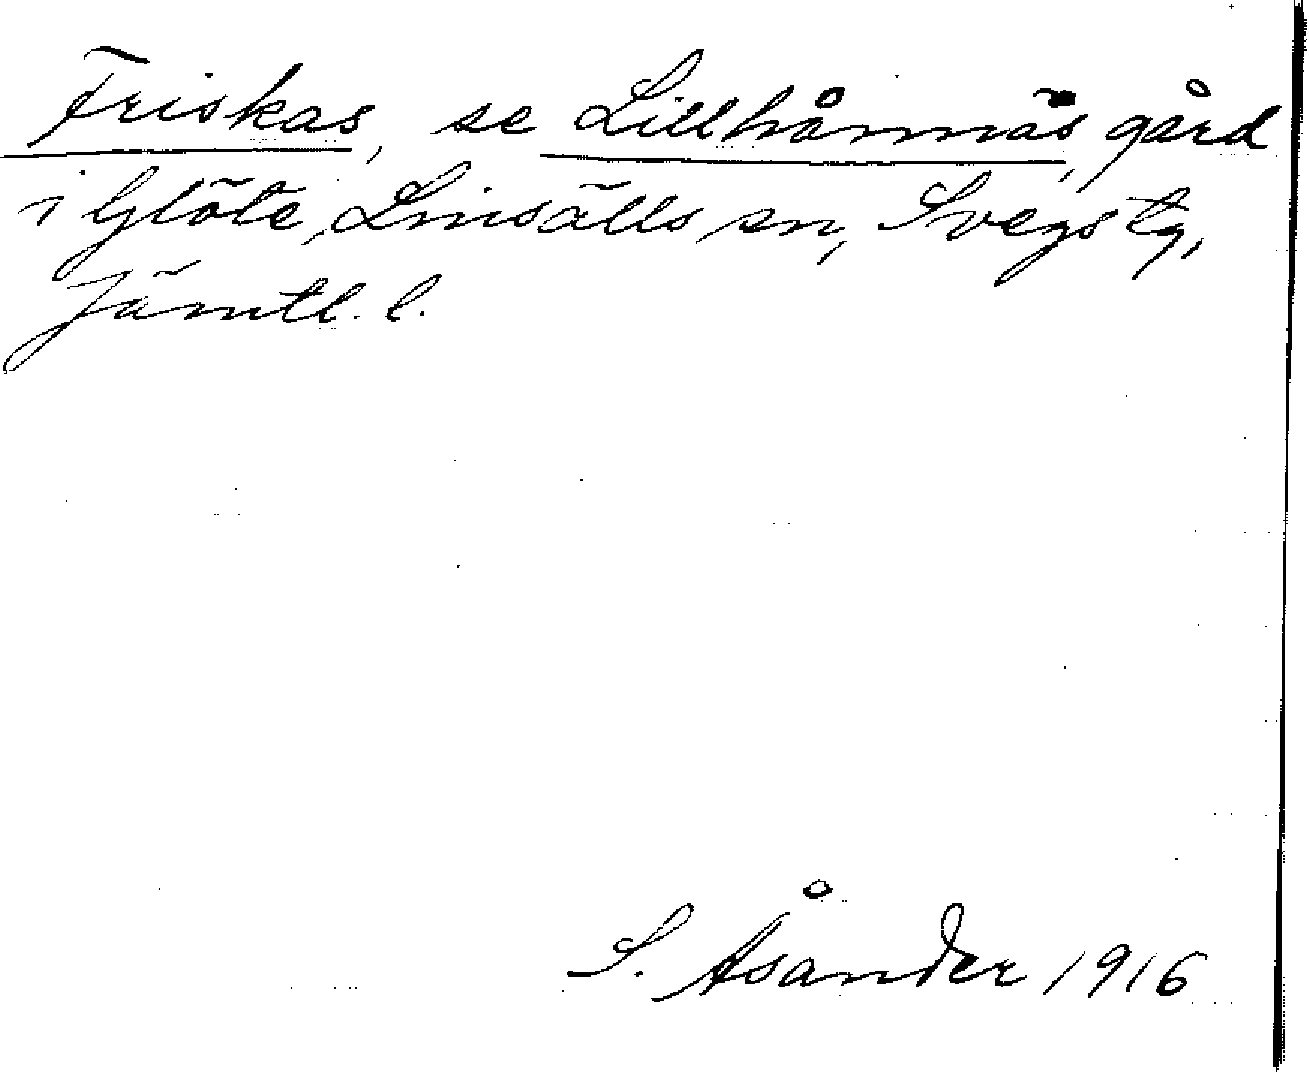 Friskas, se Lillhånnäs, gård
i Glöte, Linsälls sn, Svegs tg,
Jämtl. l.
S. Åsander 1916